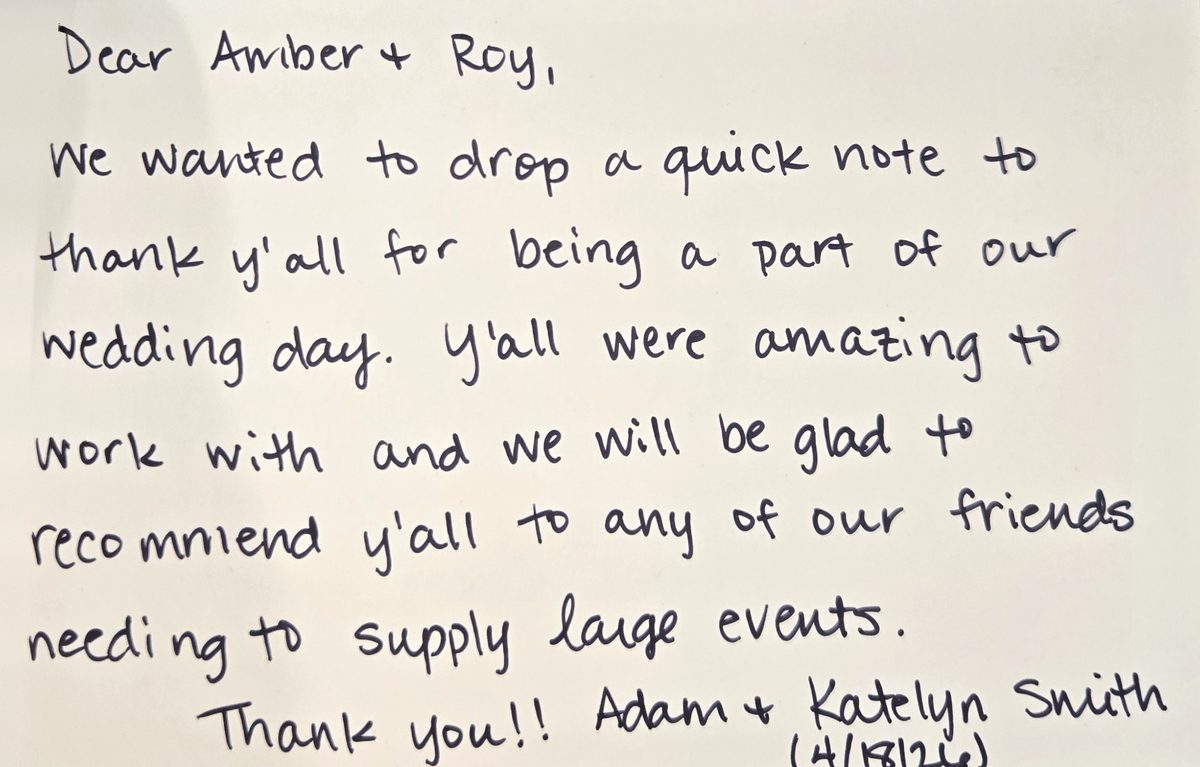 Dear Amber + Roy,
We wanted to drop a quick note to
thank y'all for being a part of our
wedding day. Y'all were amazing to
work with and we will be glad to
recommend y'all to any of our friends
needing to supply large events.
Thank you!! Adam + Katelyn Smith
(4/18/26)